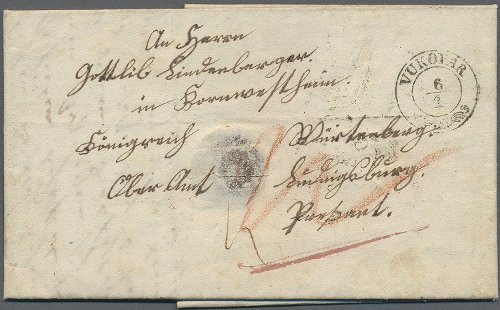 An Herrn
Gottlib Lindenberger.
in Kornwestheim.
Königreich Würtenberg.
Ober Amt Ludwigsburg.
Preßant.
VUKOVÁR
6